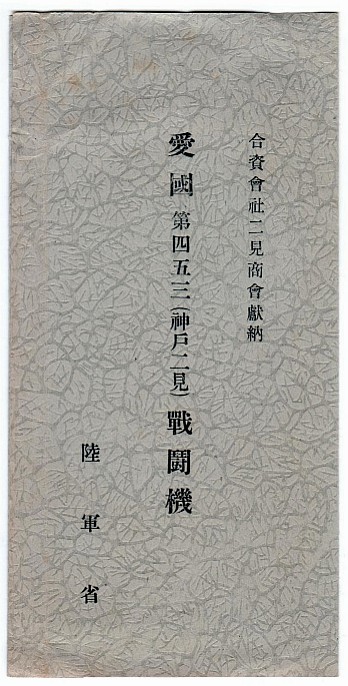 合資會社二見商會獻納
愛國第四五三(神戸二見)戰鬪機
陸軍省